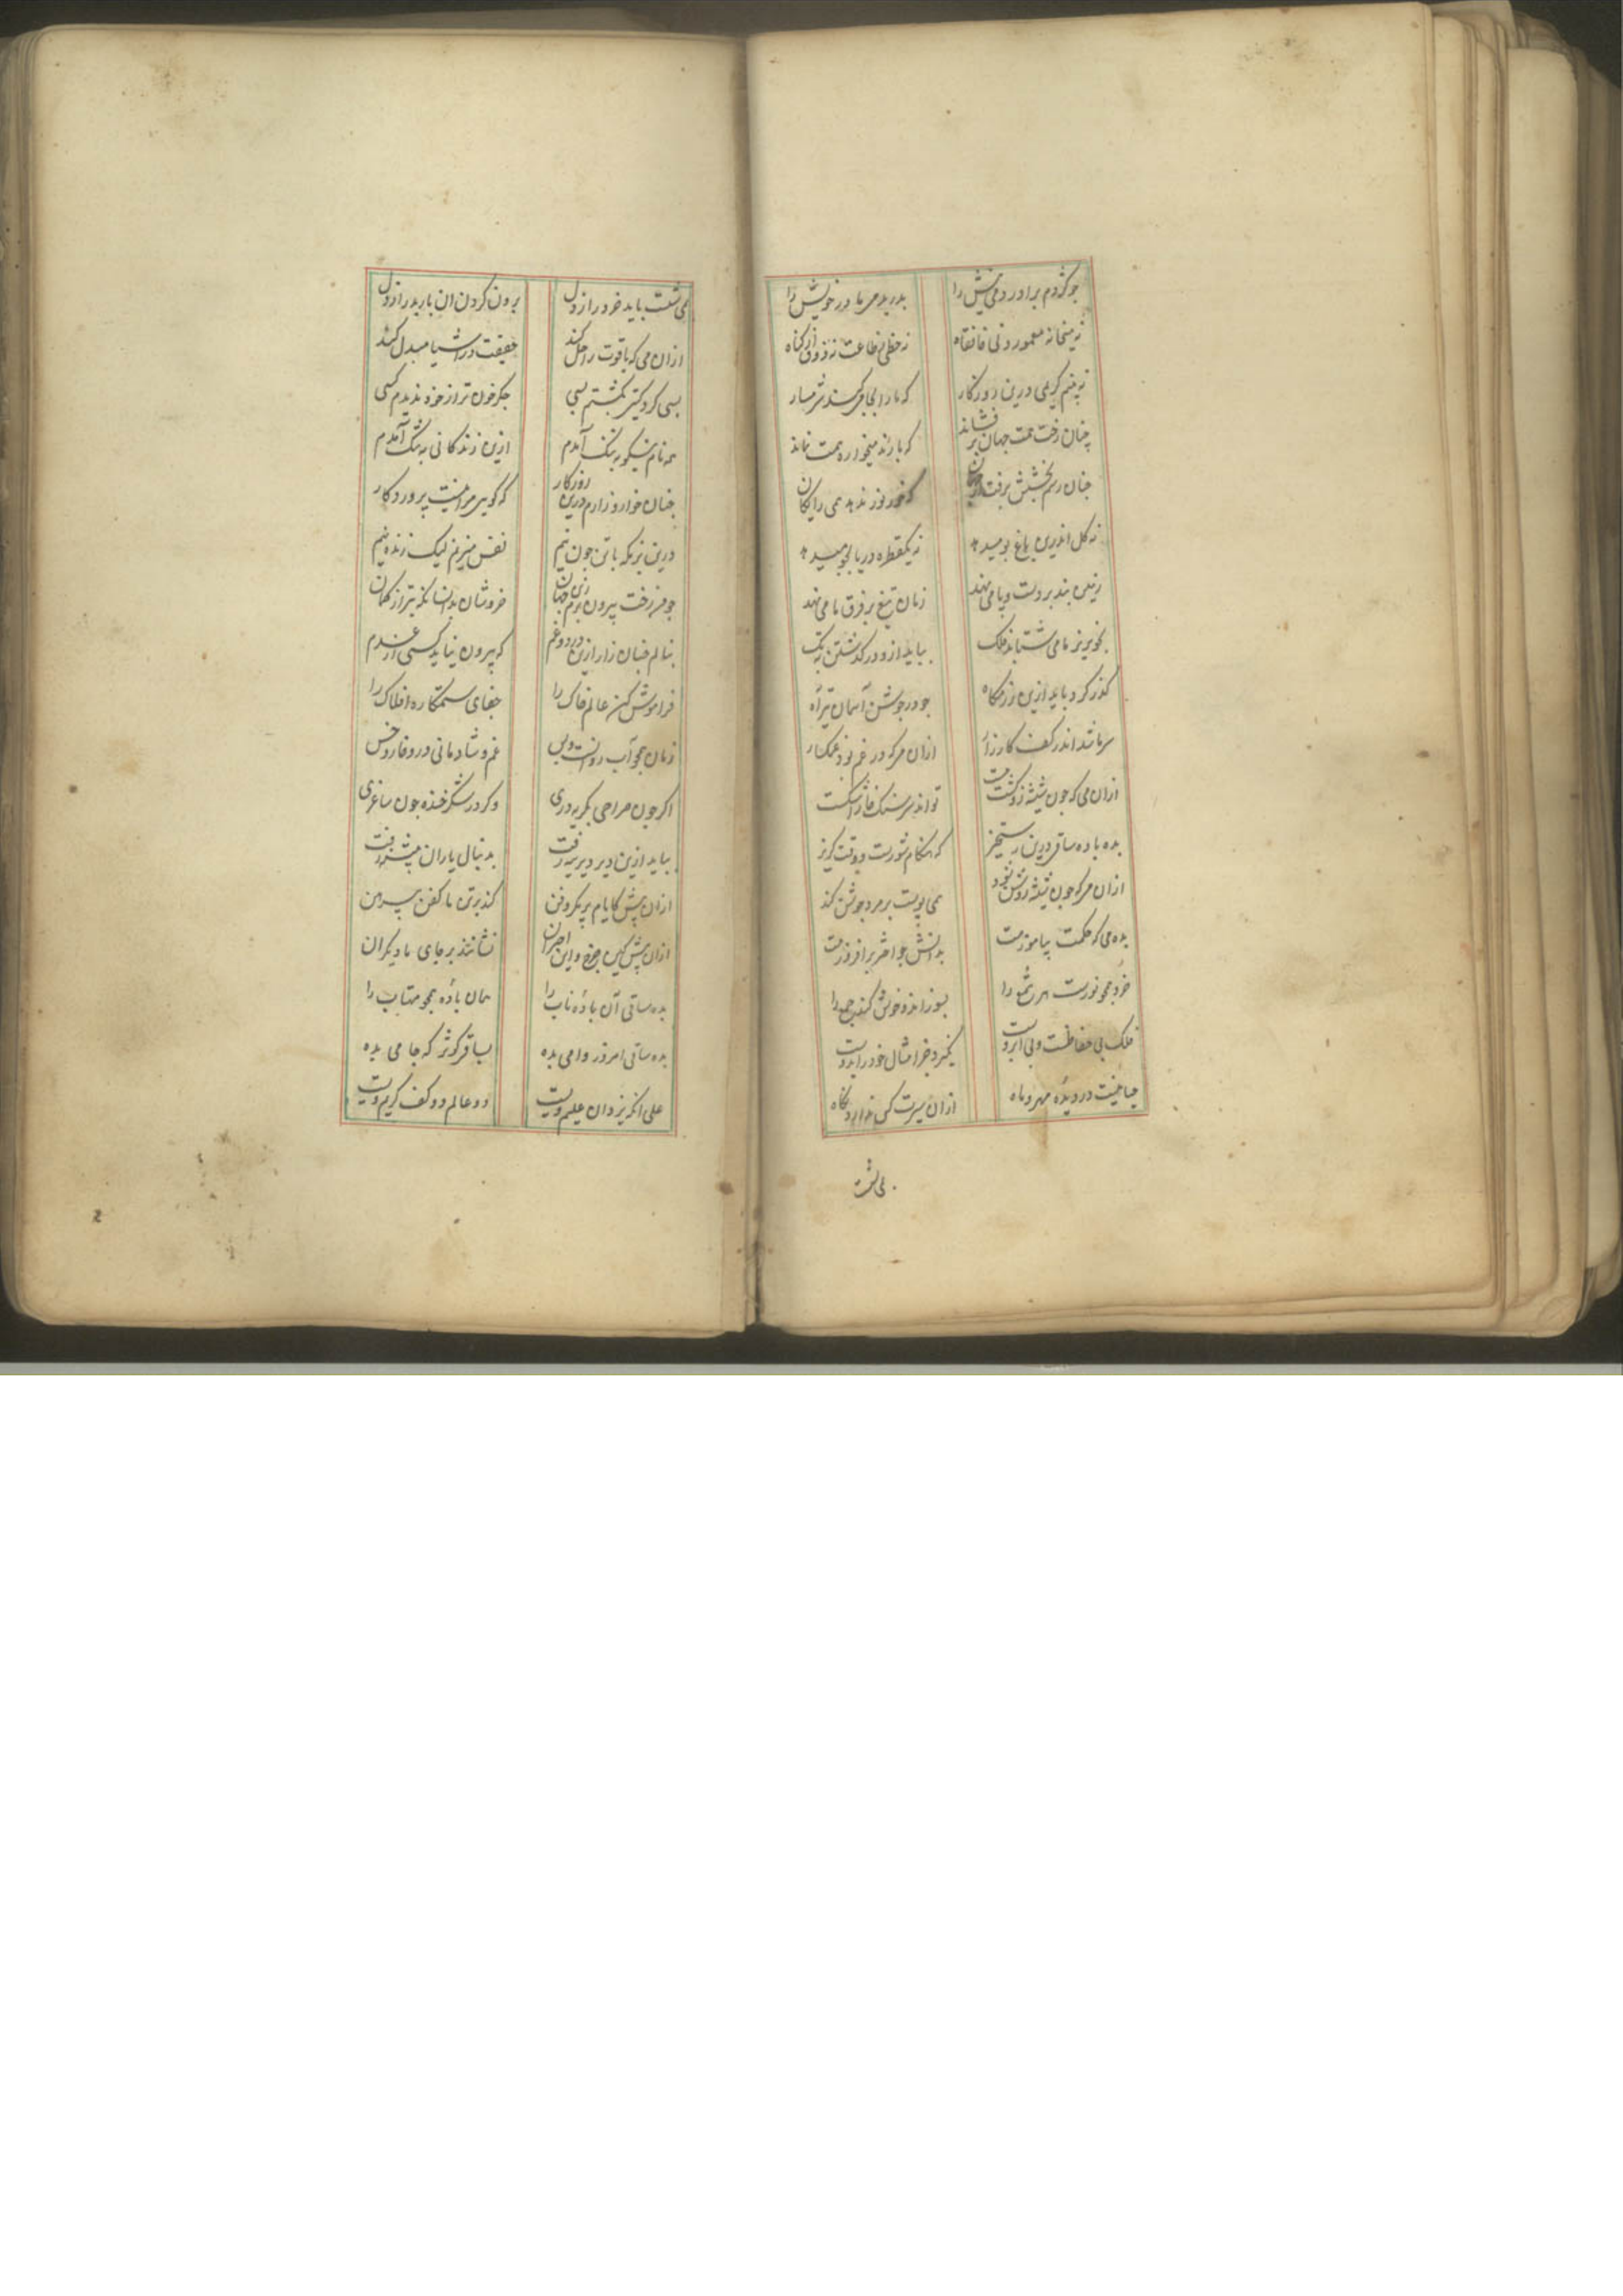 چو کژدم برآورد نیش را بدرید مر مادر خویش را
نه میخانه معمور و نی خانقاه نه حظی ز طاعت نه ذوق از گناه
نه بینم کریمی درین روزگار که ما را بجامی کند شرمسار
چنان رخت همت جهان بر فشاند که با رند میخواره همت نماند
چنان رسم بخشش برفت از جهان که خور نور ندهد همی رایگان
نه گل اندرین باغ بو میدهد نه یکقطره دریا بجو میدهد
زمین بند بر دست و پا می نهد زمان تیغ بر فرق ما می نهد
بخونریز ما می شتابد فلک بباید ازو در گذشتن بتک
گذر کرد باید ازین رزمگاه چو در جوشن آسمان تیر آه
سر باشد اندر کف کارزار ازان می که در غم بود غمگسار
ازان می که چون شیشه زو گشت مست تواند سر سنگ خارا شکست
بده باده ساقی درین رستخیز که هنگام شورست و وقت گریز
ازان می که چون شیشه زو نمود همی پوست بر مرد جوشن کند
بده می که حکمت بیاموزمت بدانش چو اختر برافروزمت
خرد همچو نورست مر شمع را بسوزاند و خوش کند جمع را
فلک بی حفاظست و بی آبروست بگیرد جز امثال خود را بدوست
حیا نیست در دیدهٔ مهر و ماه ازان سیرت کس ندارد نگاه
می شست
می شست باید خرد را ز دل برون کردن ان بار بد را ز دل
ازان می که یاقوت را حل کند حقیقت در اشیا مبدل کند
بسی گرد گیتی بگشتم بسی جگر خون تر از خود ندیدم کسی
به نام نیکو به ننگ آمدم ازین زندگانی به تنگ آمدم
چنان خوار و زارم درین روزگار که گویی مرا نیست پروردگار
درین بزمگه با تن چون نیم نفس میزنم لیک زنده نیم
چو من رخت بیرون برم زین جهان خروشان بدانسان که تیر از کمان
بنالم چنان زار ازین درد و غم که بیرون نیاید کسی از عدم
فراموش کن عالم خاک را جفای ستمکاره افلاک را
زمان همچو آب روانست و بس غم و شادمانی درو خار و خس
اگر چون صراحی بگریه دری وگر در شکر خنده چون ساغری
بباید ازین دیر دیرینه رفت بدنبال یاران پیشینه رفت
ازان پیش کایام پر مکر و فن کند بر تن ما کفن پیرهن
ازان پیش کین چرخ و این اختران نشانند بر جای ما دیگران
بده ساقی آن بادهٔ ناب را همان بادهٔ همچو مهتاب را
بده ساقی امروز و امی بده بساقی کوثر که جامی بده
علی انکه یزدان علیم ویست دو عالم دو کف کریم ویست